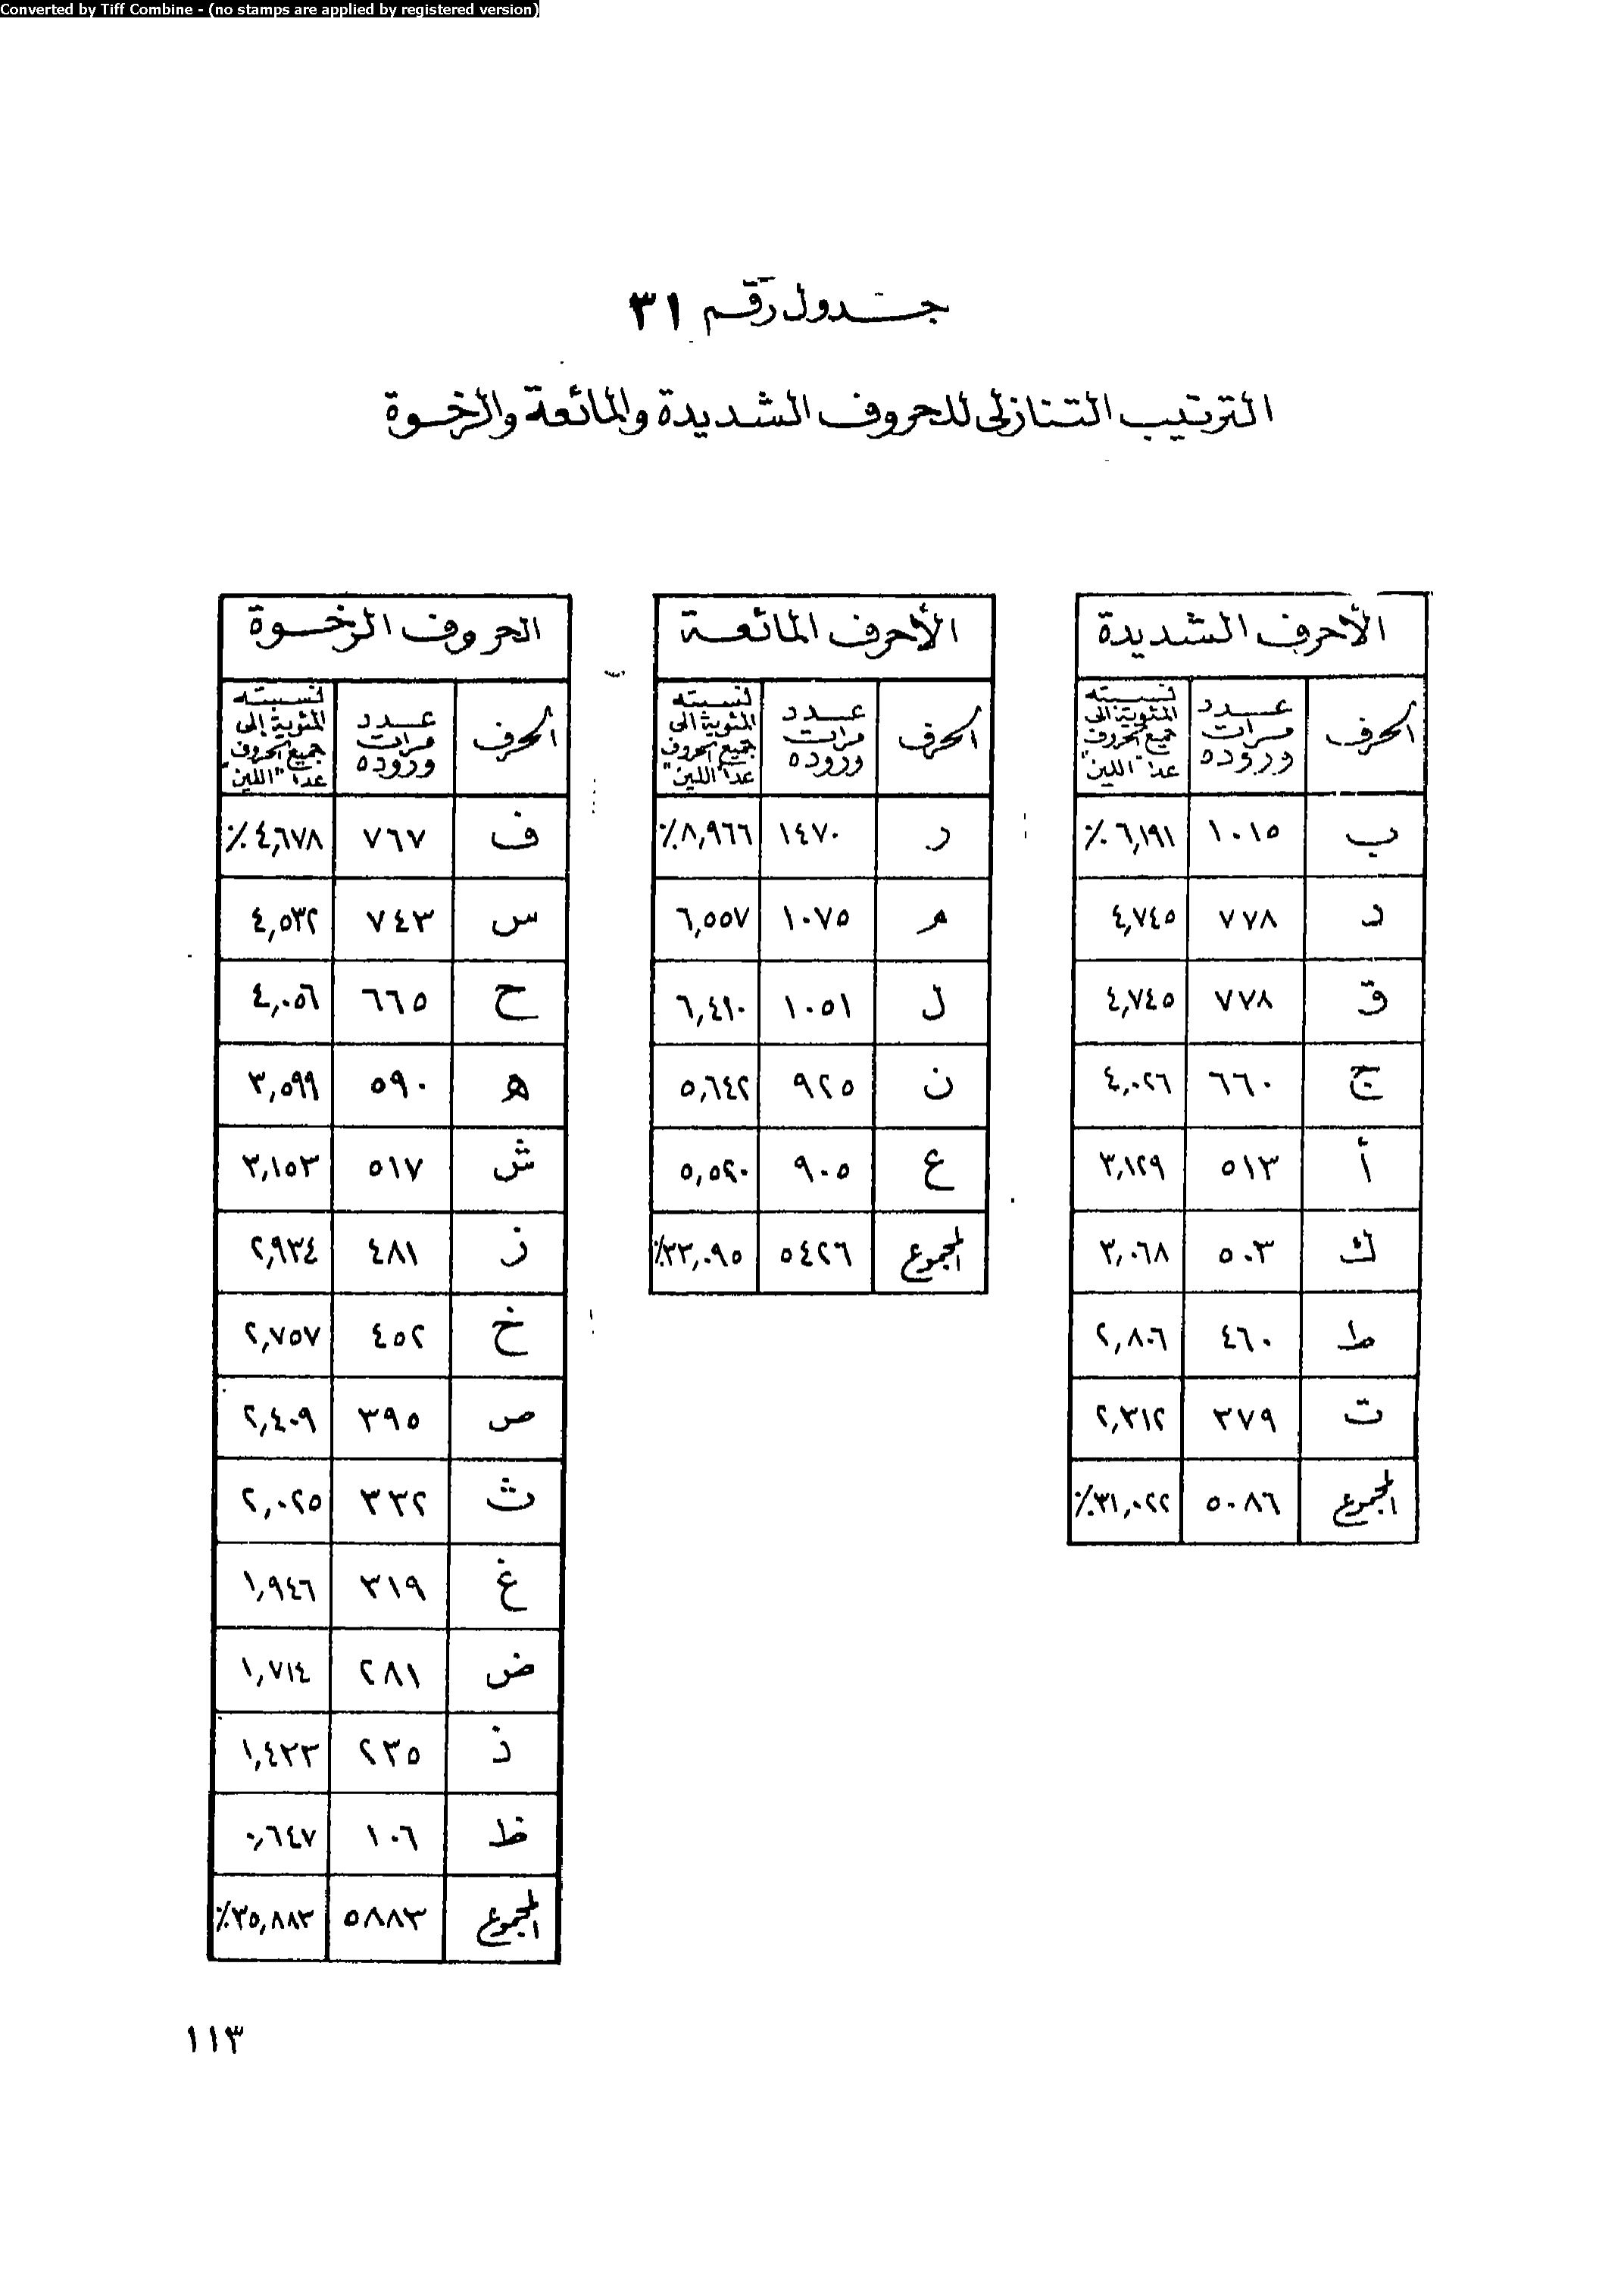 Converted by Tiff Combine - (no stamps are applied by registered version)
جدول رقم ٣١
الترتيب التنازلى للحروف الشديدة والمائعة والرخوة
الأحرف الشديدة
الحرف | عدد مرات وروده | نسبته المئوية إلى جميع الحروف عدا "اللين"
ب | ١٠١٥ | ٦,١٩١٪
د | ٧٧٨ | ٤,٧٤٥
ق | ٧٧٨ | ٤,٧٤٥
ج | ٦٦٠ | ٤,٠٢٦
أ | ٥١٣ | ٣,١٢٩
ك | ٥٠٣ | ٣,٠٦٨
ط | ٤٦٠ | ٢,٨٠٦
ت | ٣٧٩ | ٢,٣١٢
المجموع | ٥٠٨٦ | ٣١,٠٢٢٪
الأحرف المائعة
الحرف | عدد مرات وروده | نسبته المئوية إلى جميع الحروف عدا "اللين"
ر | ١٤٧٠ | ٨,٩٦٦٪
م | ١٠٧٥ | ٦,٥٥٧
ل | ١٠٥١ | ٦,٤١٠
ن | ٩٢٥ | ٥,٦٤٢
ع | ٩٠٥ | ٥,٥٢٠
المجموع | ٥٤٢٦ | ٣٣,٠٩٥٪
الحروف الرخوة
الحرف | عدد مرات وروده | نسبته المئوية إلى جميع الحروف عدا "اللين"
ف | ٧٦٧ | ٤,٦٧٨٪
س | ٧٤٣ | ٤,٥٣٢
ح | ٦٦٥ | ٤,٠٥٦
ه | ٥٩٠ | ٣,٥٩٩
ش | ٥١٧ | ٣,١٥٣
ز | ٤٨١ | ٢,٩٣٤
خ | ٤٥٢ | ٢,٧٥٧
ص | ٣٩٥ | ٢,٤٠٩
ث | ٣٣٢ | ٢,٠٢٥
غ | ٣١٩ | ١,٩٤٦
ض | ٢٨١ | ١,٧١٤
ذ | ٢٣٥ | ١,٤٣٣
ظ | ١٠٦ | ٠,٦٤٧
المجموع | ٥٨٨٣ | ٣٥,٨٨٣٪
١١٣